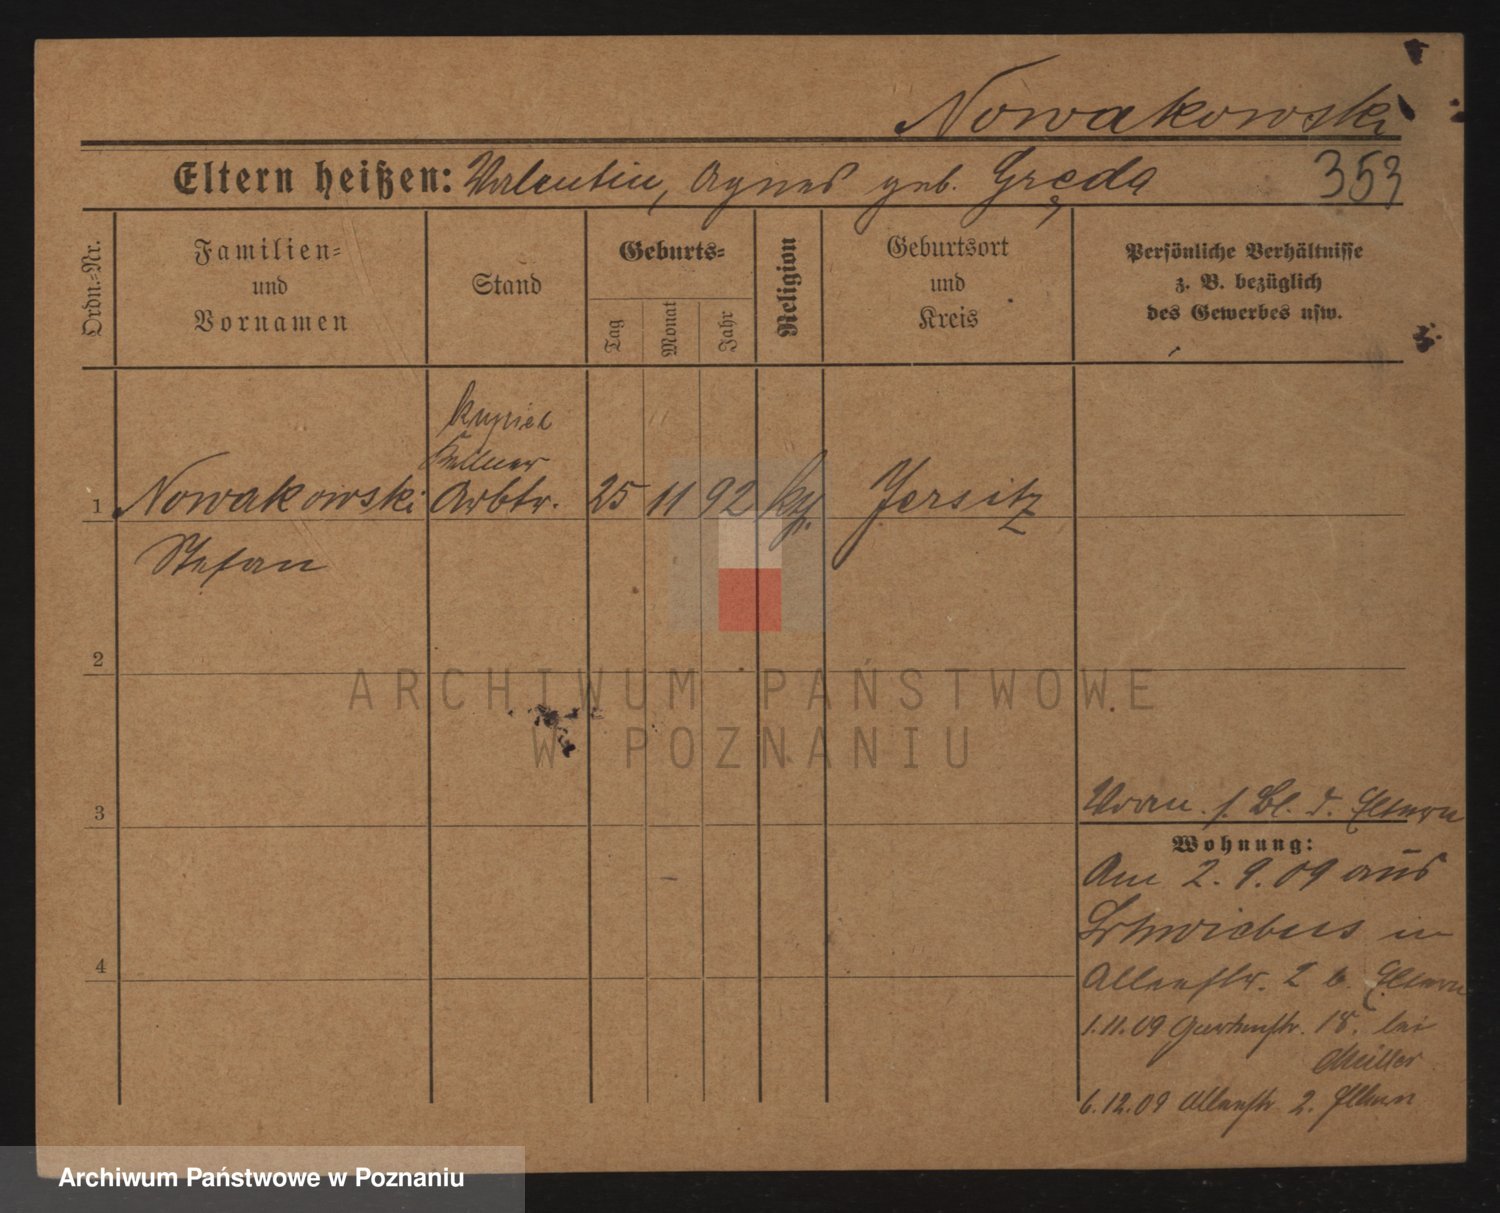 Nowakowski
Eltern heißen: Valentin, Agnes geb. Gręda 353
Ordn.-Nr.
Familien-
und
Vornamen
Stand
Geburts-
Tag
Monat
Jahr
Religion
Geburtsort
und
Kreis
Persönliche Verhältnisse
z. B. bezüglich
des Gewerbes usw.
kupiec
Kellner
1 Nowakowski Arbtr. 25 11 92 kth. Jersitz
Stefan
2
3
4
Voran. s. Bl. d. Eltern
Wohnung:
Am 2.9.09 aus
Schwiebus in
Alleestr. 2 b. Eltern
1.11.09 Gartenstr. 18. bei
Müller
6.12.09 Alleestr 2. Eltern
ARCHIWUM PAŃSTWOWE
W POZNANIU
Archiwum Państwowe w Poznaniu